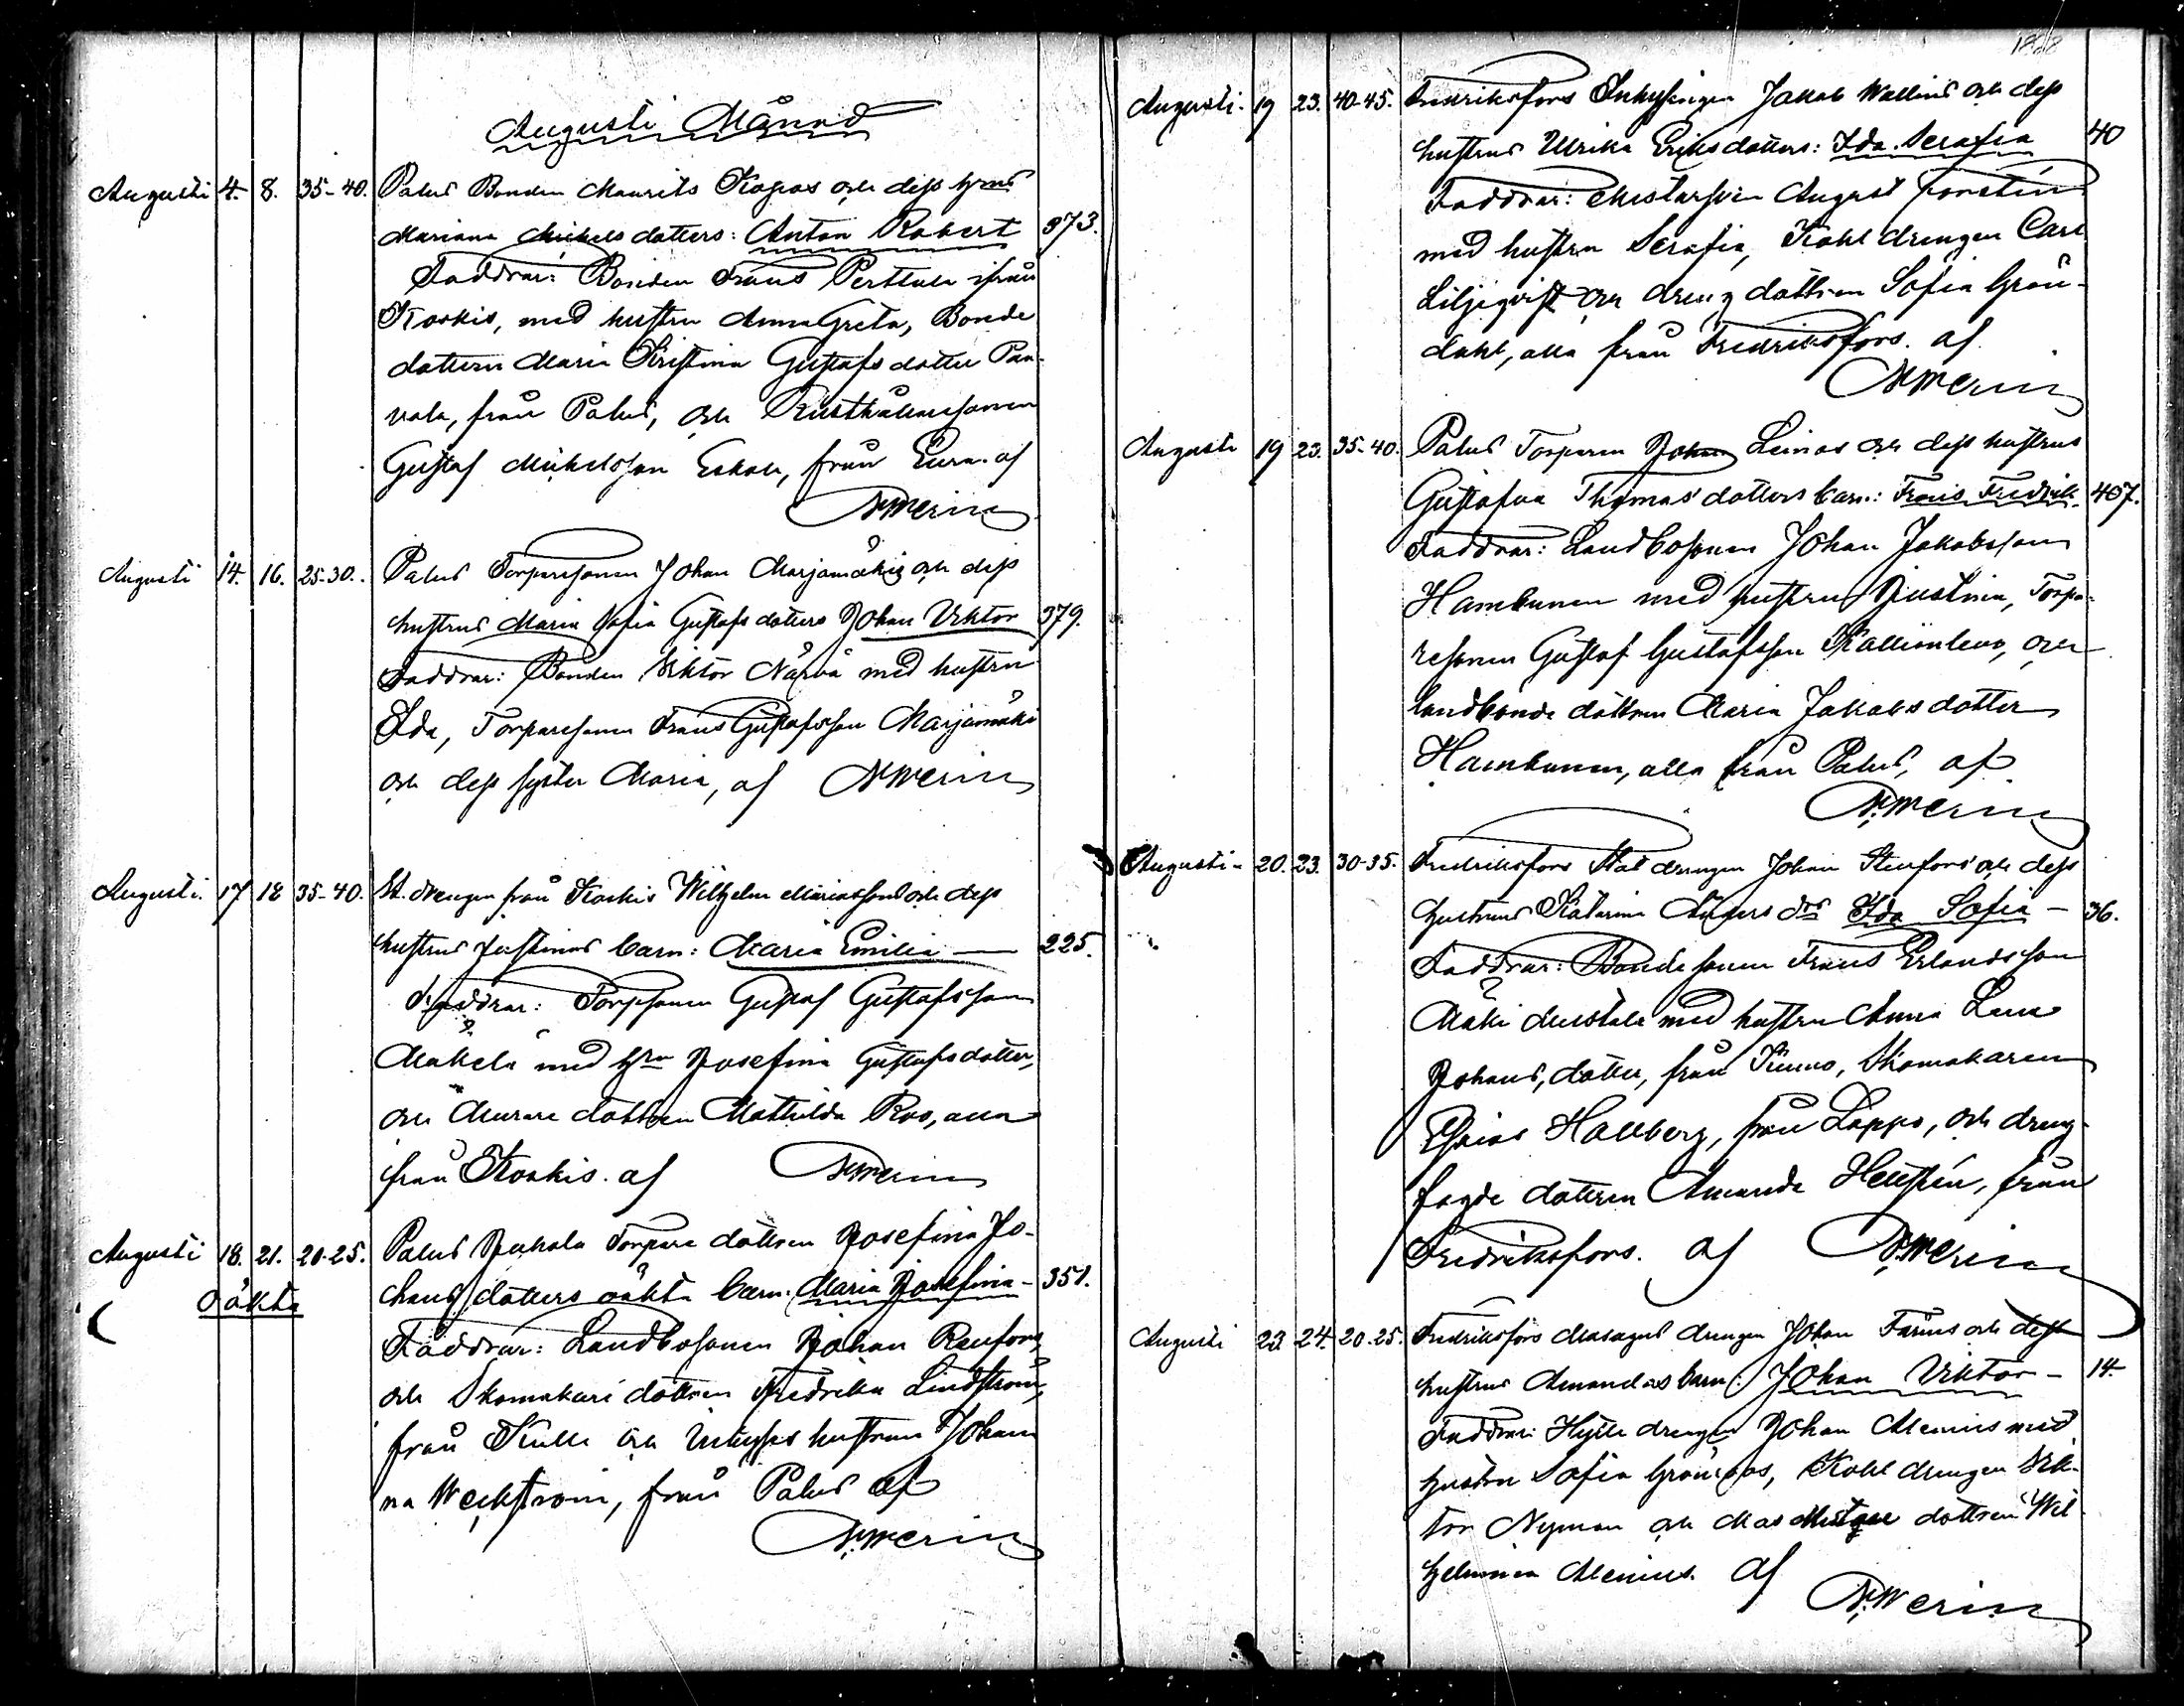 Augusti Månad
Augusti 4. 8. 35-40. Palus Bonden Maurits Kopas och dess hrus
Mariana Mickels dotters: Anton Robert 373.
Faddrar: Bonden Frans Perttula ifrån
Koskis, med hustru Anna Greta, Bonde
dottern Maria Kristina Gustafs dotter Pan-
vala, från Palus, och Rusthållaressonen
Gustaf Mickelsson Eskola, från Eura. af
N Merin
Augusti 14. 16. 25-30. Palus Torparesonen Johan Marjamäkis och dess
hustrus Maria Sofia Gustafs dotters Johan Viktor 379.
Faddrar: Bonden Viktor Närvä med hustru
Ida, Torparesonen Frans Gustafsson Marjamäki
och dess syster Maria, af N Merin
Augusti. 17 18 35-40. St. drengen från Koskis Wilhelm Mariassons och dess
hustrus Justinas barn: Maria Emilia — 225.
Faddrar: Torpsonen Gustaf Gustafsson
Mäkelä med hru Josefina Gustafsdotter,
och Murare dottren Mathilda Ros, alla
från Koskis. af N Merin
Augusti 18. 21. 20-25. Palus Jukola Torpare dottren Josefina Jo-
oäkta
hans dotters oäkta barn. Maria Josefina - 351.
Faddrar: Landbosonen Johan Renfors,
och Skomakari dottren Fredrika Lindström,
från Kulla och Inhyses hustrun Johan
na Weckström, från Palus af
N. Merin
1868
Augusti. 19 23. 40-45. Fredriksfors Inhysingen Jakob Wallins och dess
hustrus Ulrika Eriks dotters: Ida Serafia 40
Faddrar: August Forstén
med hustru Serafia, Kohl drengen Carl
Liljeqvist och dreng dottren Sofia Grön-
dahl, alla från Fredriksfors. af
N Merin
Augusti 19 23. 35-40. Palus Torparen Johan Leinos och dess hustrus
Gustafva Thomas dotters barn: Frans Fredrik. 407.
Faddrar: Landbosonen Johan Jakobsson
Hambunen med hustru Justina, Torpa-
resonen Gustaf Gustafsson och
landbonde dottren Maria Jakobs dotter
Hambunen, alla från Palus, af
N. Merin
Augusti - 20. 23. 30-35. Fredriksfors Stat drengen Johan Stenfors och dess
hustrus Katarina Anders drs Ida Sofia - 36.
Faddrar: Bondesonen Frans Erlandsson
Mäki med hustru Anna Lena
Johans, dotter, från Kiuno, Skomakaren
Esaias Hallberg, från Lappo, och dreng-
fogde dottren Amanda Hellstén, från
Fredriksfors. af N. Merin
Augusti 23 24. 20-25. Fredriksfors Masugns drengen Johan Färms och dess
hustrus Amandas barn: Johan Viktor - 14.
Faddrar: Hytte drengen Johan Alenius med
hustru Sofia Grönroos, Kohl drengen Vik-
tor Nyman och Mas dottren Wil-
helmina Alenius. af
N. Merin